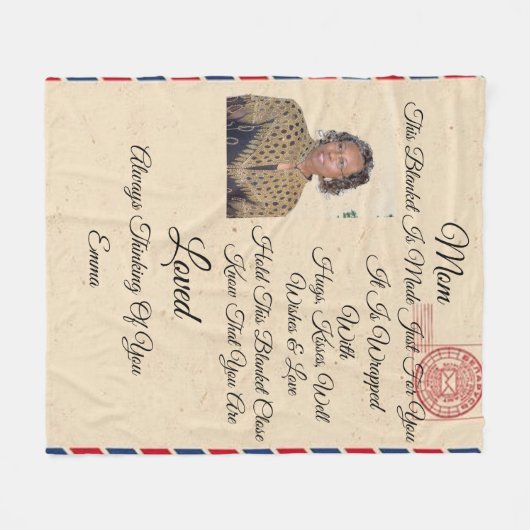 Mom
This Blanket Is Made Just For You
It Is Wrapped
With
Hugs, Kisses, Well
Wishes & Love
Hold This Blanket Close
Know That You Are
Loved
Always Thinking Of You
Emma